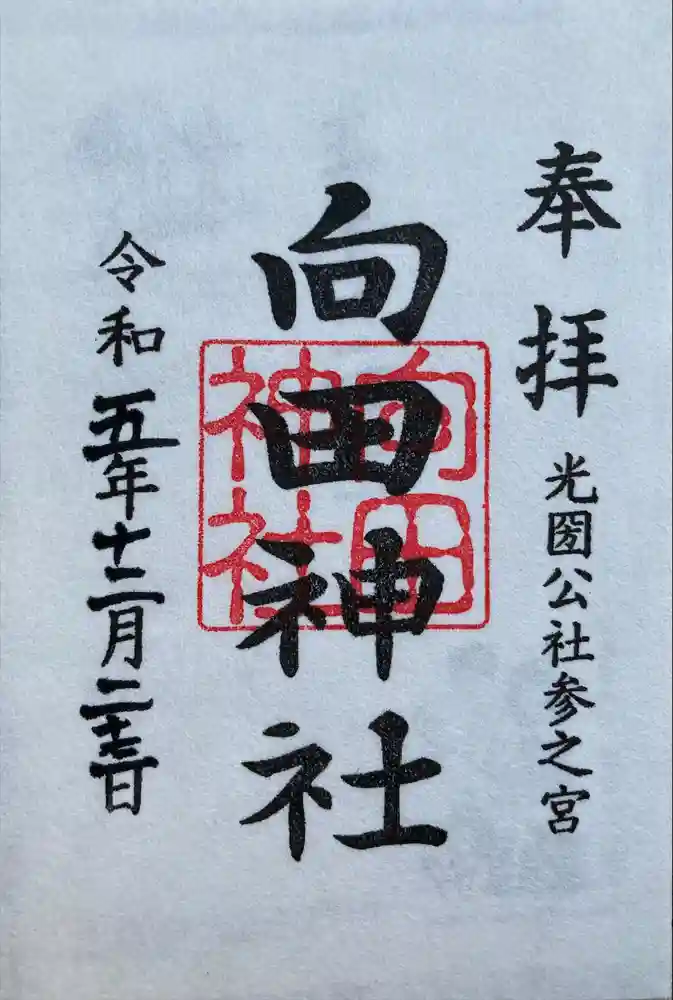 奉拝
光圀公社参之宮
向田神社
向田
神社
令和五年十二月二十日